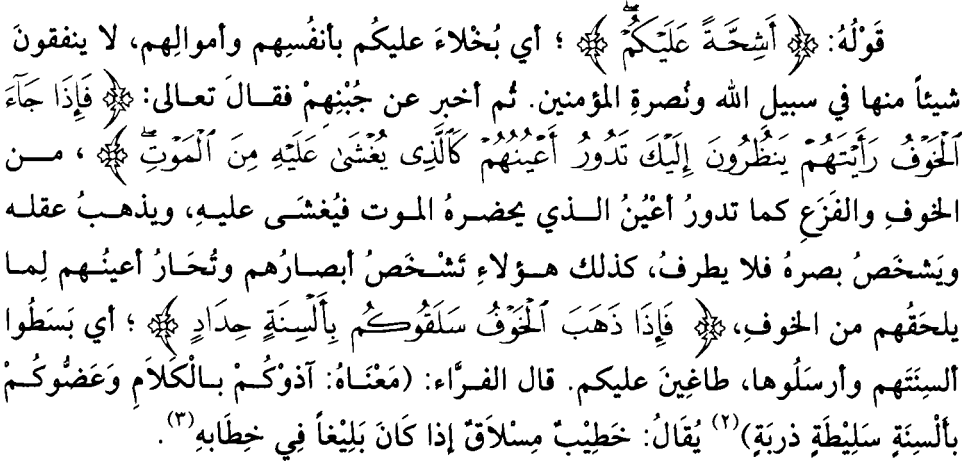 قَوْلُهُ: ﴿ أَشِحَّةً عَلَيۡكُمۡۖ ﴾ ؛ أي بُخْلاءَ عليكُم بأنفُسِهم وأموالِهم، لا ينفقونَ
شيئاً منها في سبيلِ الله ونُصرةِ المؤمنين. ثُم أخبر عن جُبْنِهِمْ فقالَ تعالى: ﴿ فَإِذَا جَآءَ
ٱلۡخَوۡفُ رَأَيۡتَهُمۡ يَنظُرُونَ إِلَيۡكَ تَدُورُ أَعۡيُنُهُمۡ كَٱلَّذِى يُغۡشَىٰ عَلَيۡهِ مِنَ ٱلۡمَوۡتِۖ ﴾ ، من
الخوفِ والفَزَعِ كما تدورُ أعْيُنُ الذي يحضرهُ الموت فيُغشَى عليهِ، ويذهبُ عقله
ويَشخَصُ بصرهُ فلا يطرفُ، كذلك هؤلاءِ تَشْخَصُ أبصارُهم وتُحَارُ أعينُهم لِما
يلحَقُهم من الخوفِ، ﴿ فَإِذَا ذَهَبَ ٱلۡخَوۡفُ سَلَقُوكُم بِأَلۡسِنَةٍ حِدَادٍ ﴾ ؛ أي بَسَطُوا
ألسِنَتَهم وأرسَلُوها، طاغِينَ عليكم. قال الفرَّاء: (مَعْنَاهُ: آذوْكُمْ بالْكَلاَمِ وَعَضُّوكُمْ
بأَلْسِنَةٍ سَلِيْطَةٍ ذربَةٍ)(٢) يُقَالُ: خَطِيْبٌ مِسْلاَقٌ إذا كَانَ بَلِيْغاً فِي خِطَابهِ(٣).